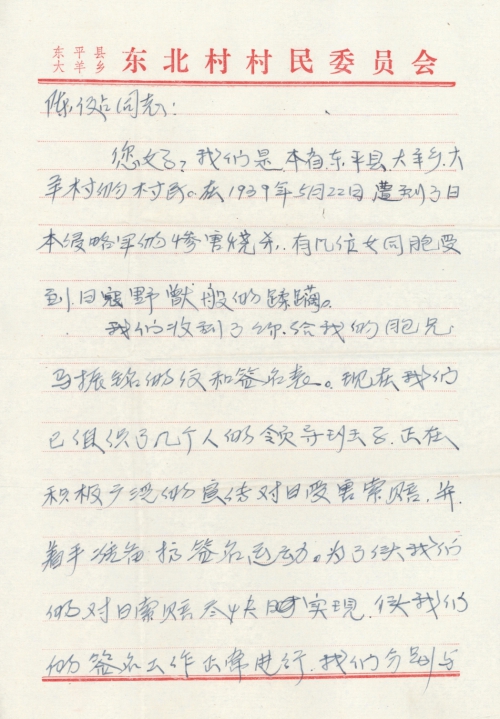 东平县
大羊乡
东北村村民委员会
同志:
您好,我们是本省东平县大羊乡大
羊村的村民。在1939年5月22日遭到了日
本侵略军的惨害烧杀,有几位女同胞受
到日寇野獸般的蹂躏。
我们收到了你给我的胞兄
马振铭的信和签名表。现在我们
已组织了几个人的领导班子,正在
积极广泛的宣传对日受害索赔,并
着手准备搞签名运动。为了使我们
的对日索赔尽快实現,使我们
的签名工作正常进行,我们分别与